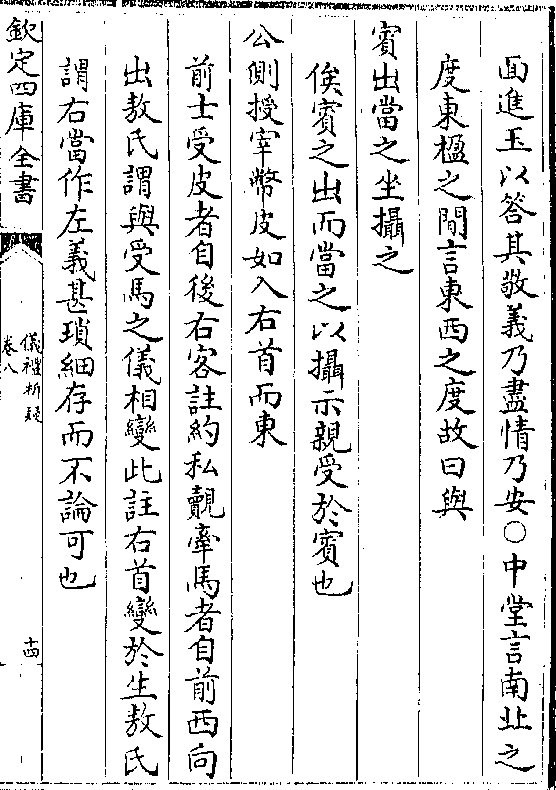 面進玉以答其敬義乃盡情乃安○中堂言南北之
度東楹之間言東西之度故曰與
賓出當之坐攝之
俟賓之出而當之以攝示親受於賓也
公側授宰幣皮如入右首而東
前士受皮者自後右客註約私覿牽馬者自前西向
出敖氏謂與受馬之儀相變此註右首變於生敖氏
謂右當作左義甚瑣細存而不論可也
欽定四庫全書
儀禮析疑
卷八
十四